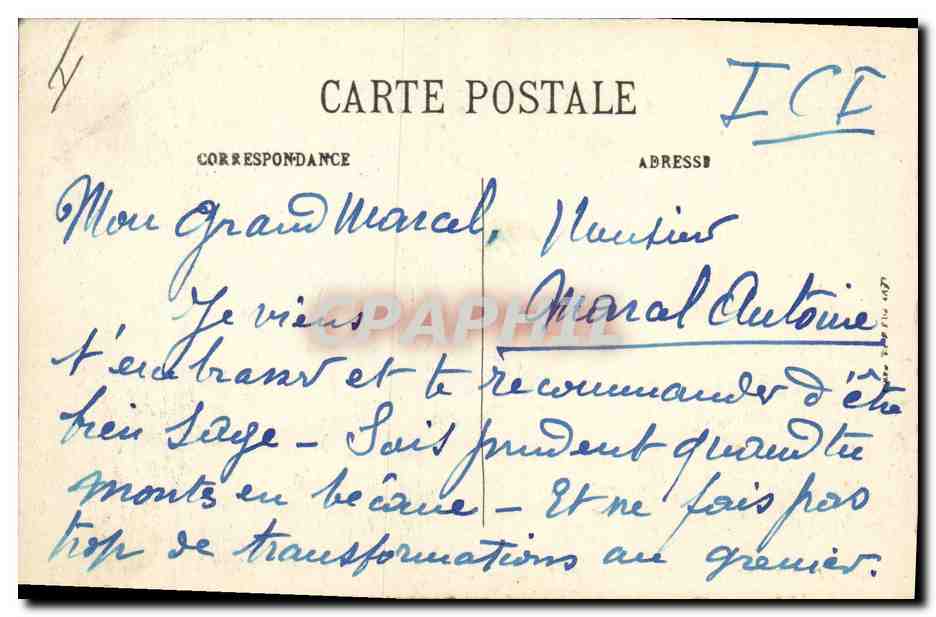 CARTE POSTALE
ICI
CORRESPONDANCE
ADRESSE
Mon grand Marcel,
Monsieur
Marcel Antoine
Je viens
t'embrasser et te recommander d'être
bien sage - Sois prudent quand tu
montes en bécane - Et ne fais pas
trop de transformations au grenier.
CPAPHIL